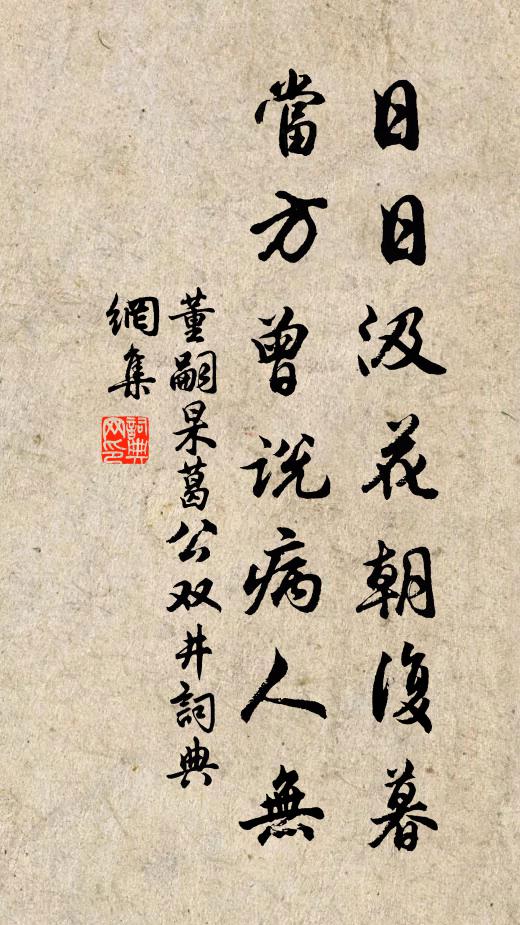 日日汲花朝復暮
當方曾说病人無
董嗣杲葛公双井詞典
網集
詞典
网印